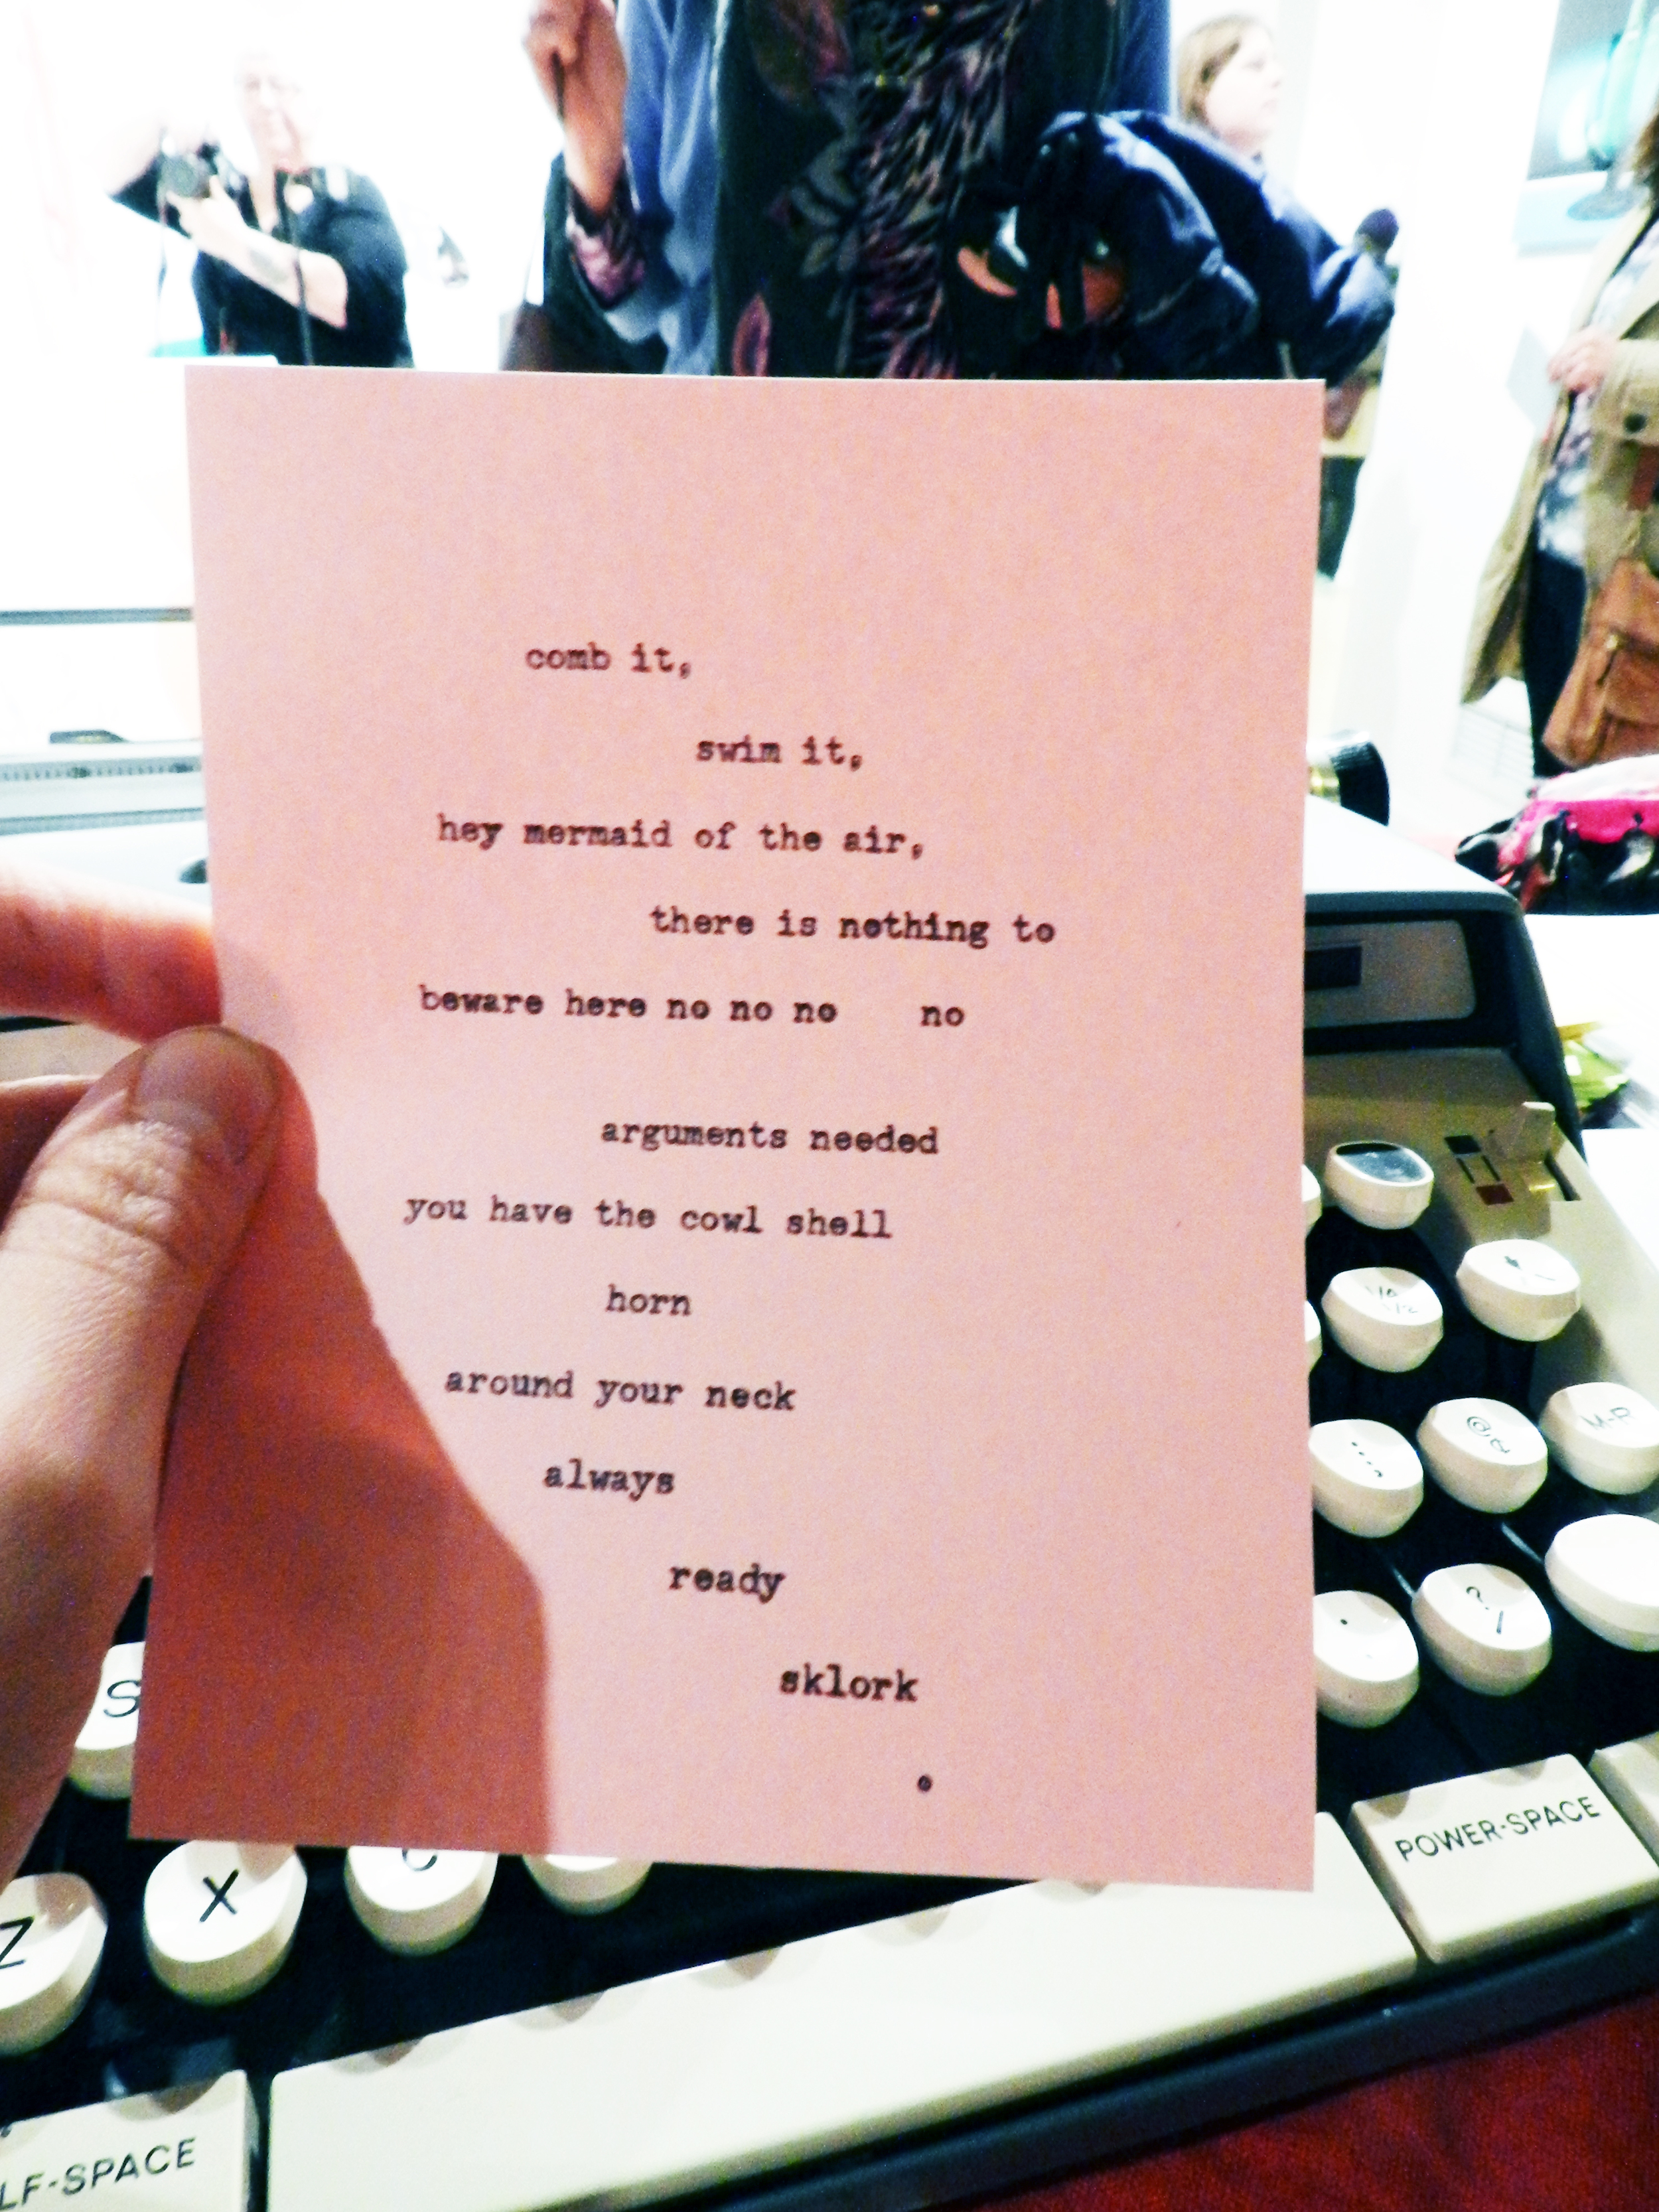 comb it,
swim it,
hey mermaid of the air,
there is nothing to
beware here no no no    no
arguments needed
you have the cowl shell
horn
around your neck
always
ready
sklork
.
1/4 1/2
@ ¢
M-R
: ;
? /
.
S
POWER-SPACE
Z X C
LF-SPACE